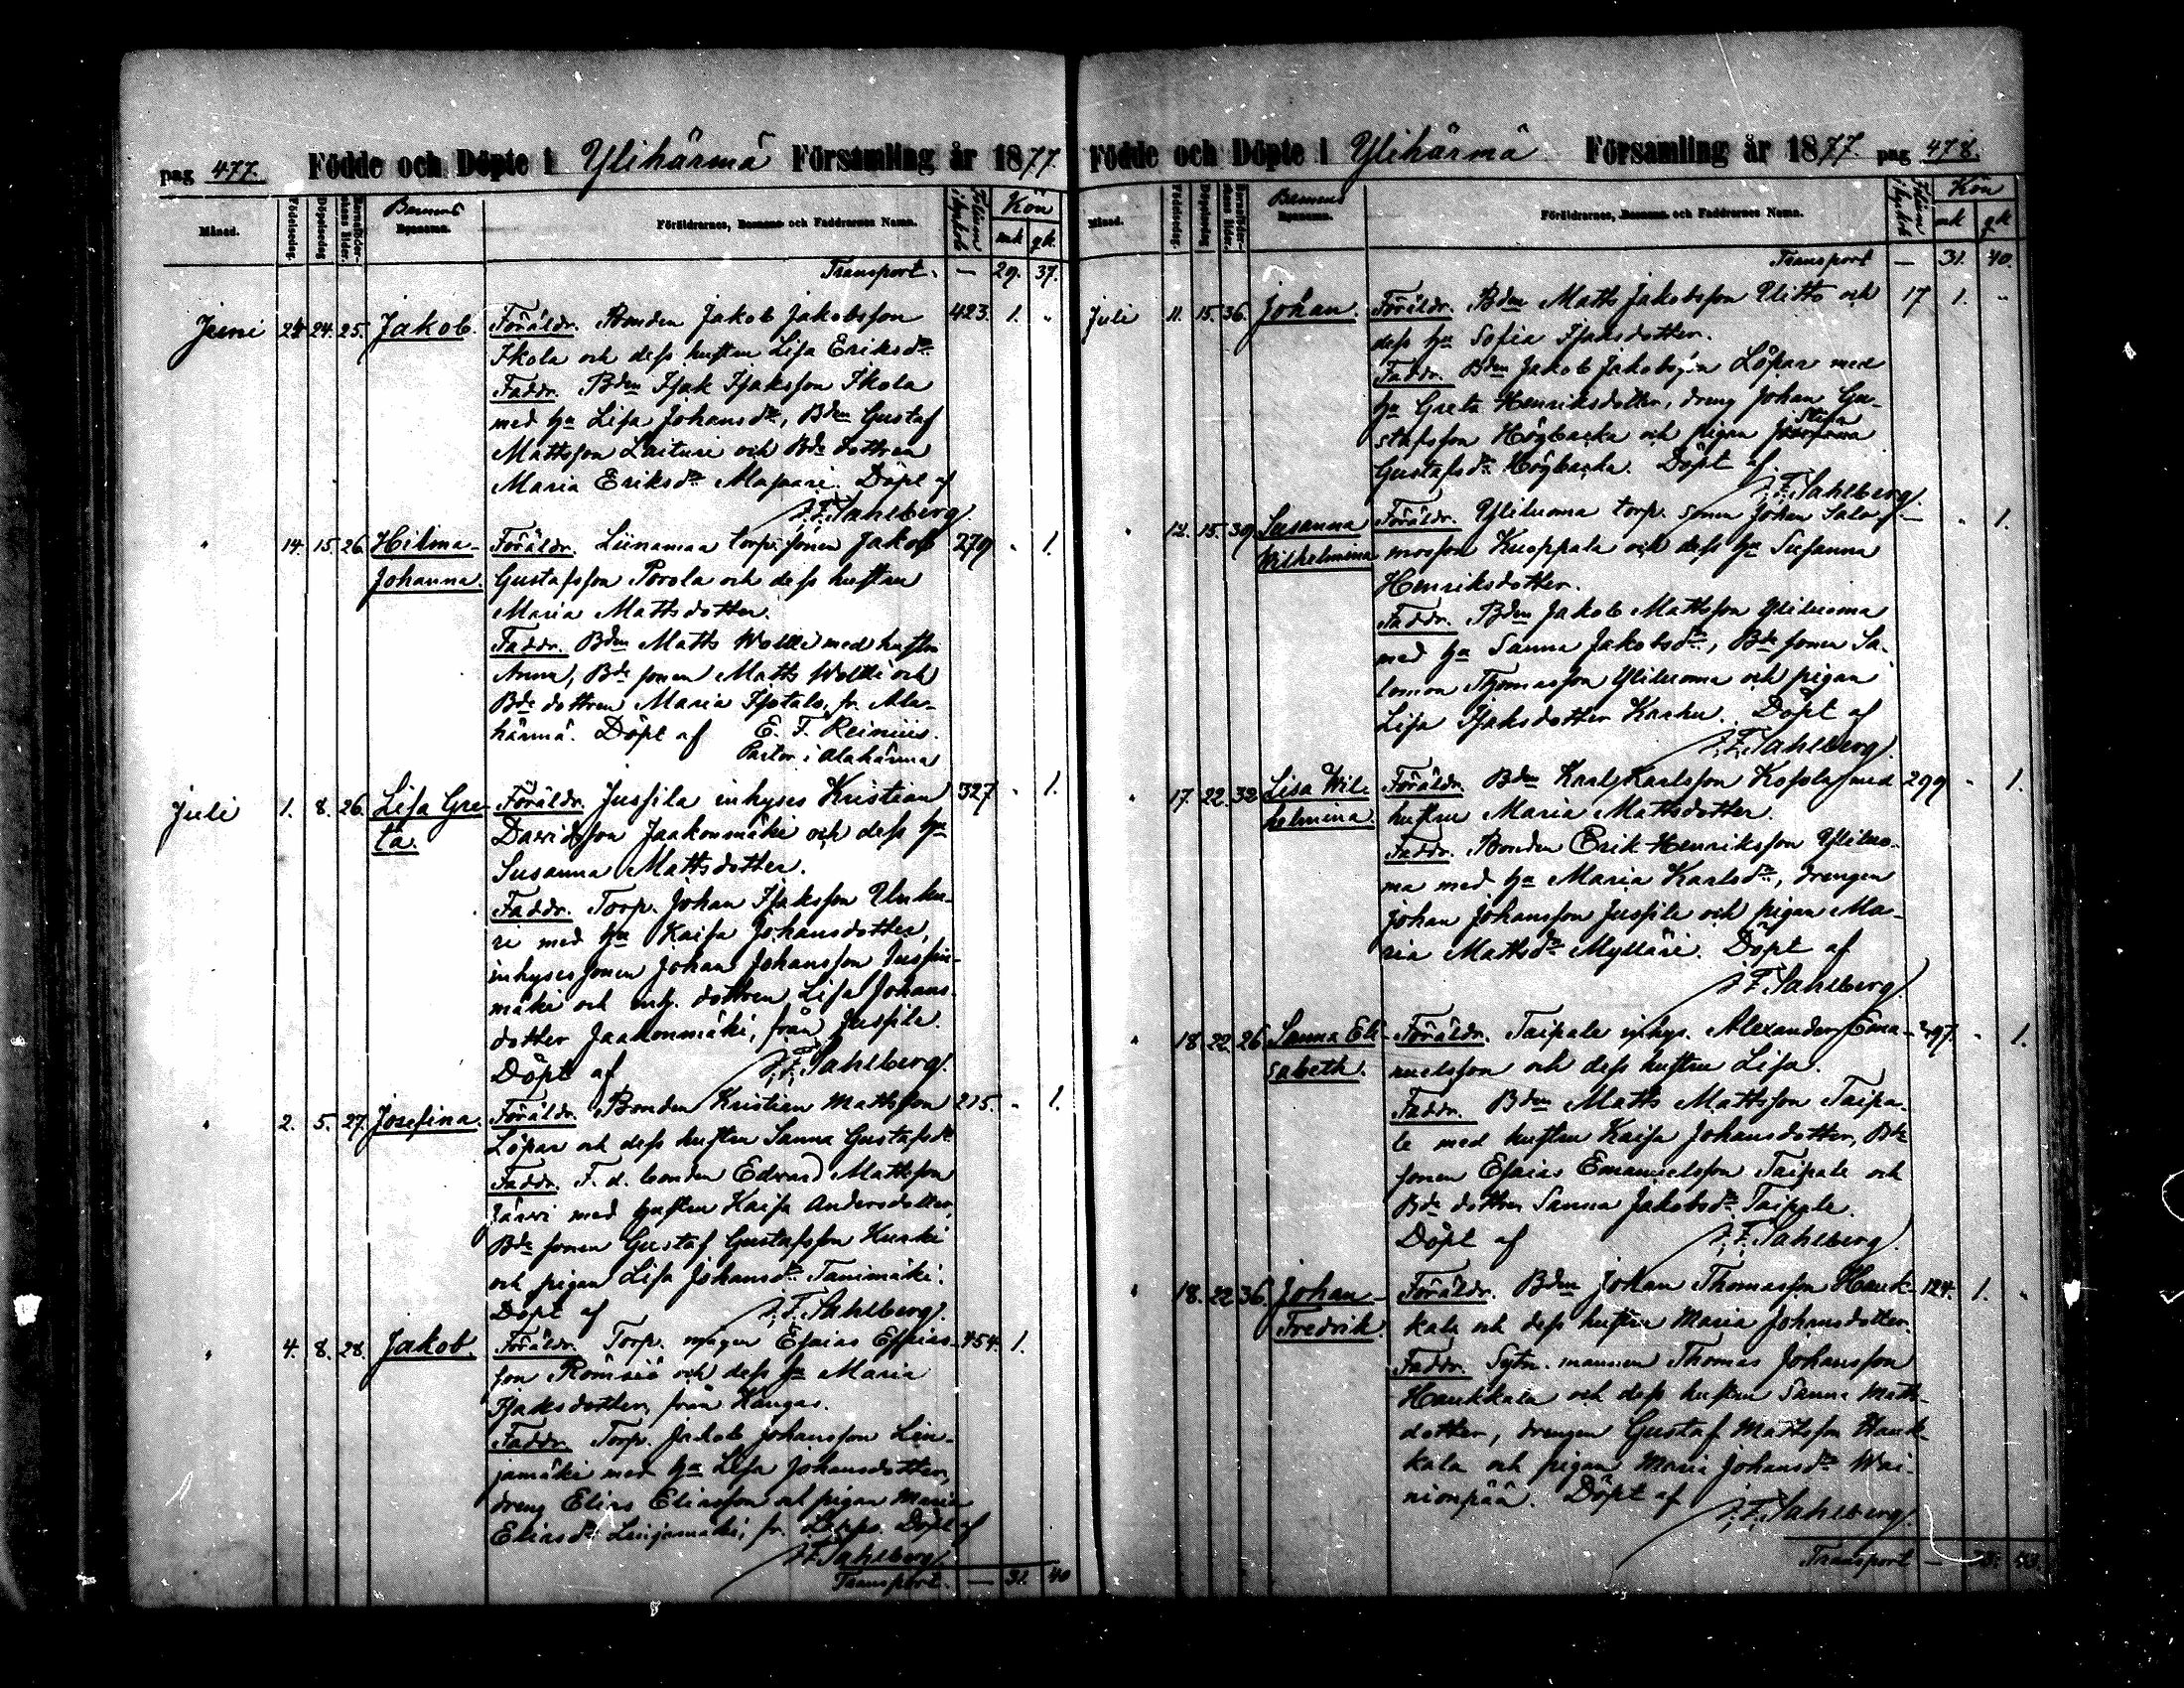 pag 477. Födde och Döpte i Ylihärmä Församling år 1877.
Månad. Födelsedag. Döpelsedag. Barnens Föräldrarnes, Barnens och Faddrarnes Namn. Kön
mk. qk.
Transport. — 29. 37.
Juni 24. 24. 25. Jakob. Föräldr. Bonden Jakob Jakobsson 423. 1. "
Ikola och dess hustru Lisa Eriksdr.
Faddr. Bden Isak Isaksson Ikola
med ha Lisa Johansdr, Bden Gustaf
Mattsson Laituri och Bde dottren
Maria Eriksdr Döpt af
J. F. Sahlberg.
" 14. 15. 26. Hilma Föräldr. Liinamaa torp. sonen Jakob 279 " 1.
Johanna. Gustafsson Porola och dess hustru
Maria Mattsdotter.
Faddr. Bden Matts Wolki med hustru
Anna, Bde sonen Matts Wolki och
Bde dottren Maria Isotalo, fr. Ala-
härmä. Döpt af E. F. Reinius.
Pastor i Alahärmä
Juli 1. 8. 26. Lisa Gre- Föräldr. Jussila inhyses Kristian 327 " 1.
ta. Davidsson Jaakonmäki och dess ha
Susanna Mattsdotter.
Faddr. Torp. Johan Isaksson Unku-
ri med ha Kaisa Johansdotter,
inhyses sonen Johan Johansson Jussin-
mäki och inh. dottren Lisa Johans-
dotter Jaakonmäki, från Jussila.
Döpt af J. F. Sahlberg.
" 2. 5. 27. Josefina. Föräldr. Bonden Kristian Mattsson 215. " 1.
Löpar och dess hustru Sanna Gustafsdr
Faddr. F. d. bonden Edvard Mattsson
Järvi med hustru Kaisa Andersdotter,
Bde sonen Gustaf Gustafsson Kurki
och pigan Lisa Johansdr Tanimäki.
Döpt af J. F. Sahlberg.
" 4. 8. 28. Jakob. Föräldr. Torp. mågen Esaias Essias- 454. 1.
son och dess ha Maria
Isaksdotter, från Kangas.
Faddr. Torp. Jakob Johansson Lin-
jamäki med ha Lisa Johansdotter,
dreng Elias Eliasson och pigan Maria
Eliasdr Linjamäki, fr. Döpt af
J. F. Sahlberg.
Transport. — 31. 40
Födde och Döpte i Ylihärmä Församling år 1877. pag 478.
Månad. Födelsedag. Döpelsedag. Barnens Föräldrarnes, Barnens och Faddrarnes Namn. Kön
mk qk
Transport — 31. 40.
Juli 11. 15. 36. Johan. Föräldr. Bden Matts Jakobsson Ulitts och 17 1. "
dess ha Sofia Isaksdotter.
Faddr. Bden Jakob Jakobsson Löpar med
ha Greta Henriksdotter, dreng Johan Gu-
stafsson Högbacka och pigan
Gustafsdr Högbacka. Döpt af
J. F. Sahlberg.
" 12. 15. 39. Susanna Föräldr. Yliluoma torp. sonen Johan Salo- — " 1.
Wilhelmina monsson Kuoppala och dess ha Susanna
Henriksdotter.
Faddr. Bden Jakob Mattsson Yliluoma
med ha Sanna Jakobsdr, Bde sonen Sa-
lomon Thomasson Yliluoma och pigan
Lisa Isaksdotter Karhu. Döpt af
J. F. Sahlberg.
" 17. 22. 32 Lisa Wil- Föräldr. Bden Karl Karlsson Kosola med 299 " 1.
helmina. hustru Maria Mattsdotter.
Faddr. Bonden Erik Henriksson Yliluo-
ma med ha Maria Karlsdr, drengen
Johan Johansson Jussila och pigan Ma-
ria Mattsdr Mylläri. Döpt af
J. F. Sahlberg.
" 18. 22. 26. Sanna Eli- Föräldr. Taipale inhys. Alexander Ema- 297. " 1.
sabeth. nuelsson och dess hustru Lisa.
Faddr. Bden Matts Mattsson Taipa-
le med hustru Kaisa Johansdotter, Bde
sonen Esaias Emanuelsson Taipale och
Bde dottren Sanna Jakobsdr Taipale.
Döpt af J. F. Sahlberg.
" 18. 22 36. Johan Föräldr. Bden Johan Thomasson Hauk- 124. 1. "
Fredrik. kala och dess hustru Maria Johansdotter.
Faddr. Sytn. mannen Thomas Johansson
Haukkala och dess hustru Sanna Matts-
dotter, drengen Gustaf Mattsson Hauk-
kala och pigan Maria Johansdr Wai-
nionpää. Döpt af J. F. Sahlberg.
Transport —